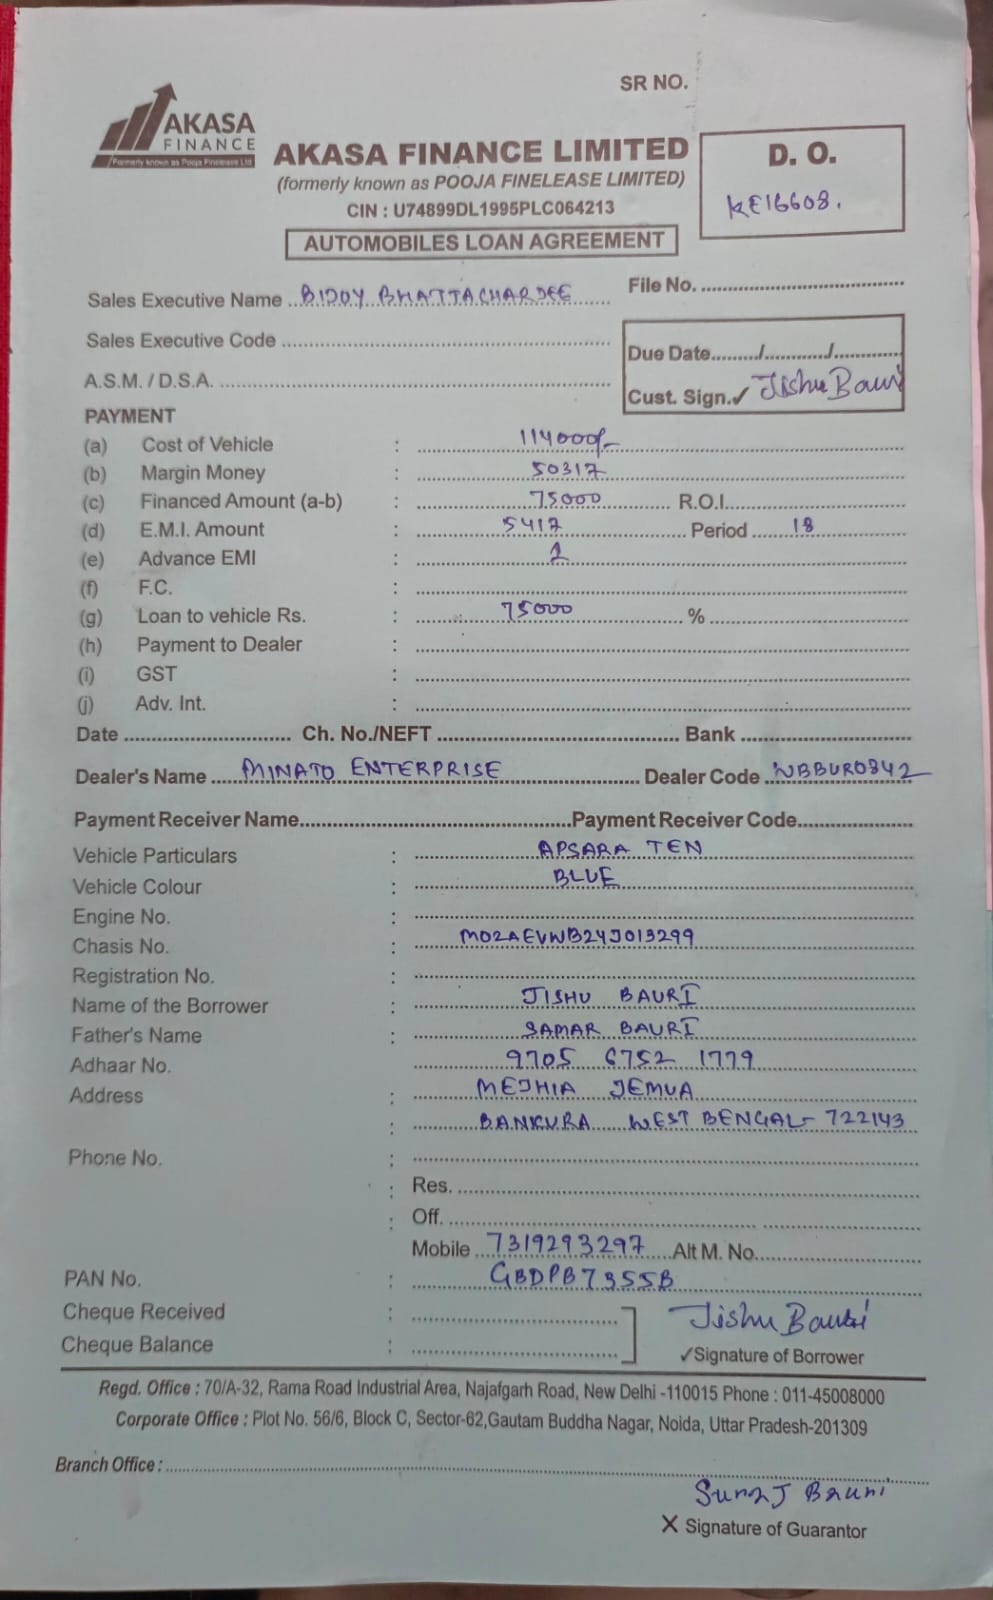 SR NO.
AKASA
FINANCE
Formerly known as Pooja Finelease Ltd
AKASA FINANCE LIMITED
(formerly known as POOJA FINELEASE LIMITED)
CIN : U74899DL1995PLC064213
AUTOMOBILES LOAN AGREEMENT
D. O.
KE16608.
Sales Executive Name BIJOY BHATTACHARJEE
File No.
Sales Executive Code
A.S.M. / D.S.A.
Due Date / /
Cust. Sign. ✓ Jishu Bauri
PAYMENT
(a) Cost of Vehicle : 114000/-
(b) Margin Money : 50317
(c) Financed Amount (a-b) : 75000 R.O.I.
(d) E.M.I. Amount : 5417 Period 18
(e) Advance EMI : 2
(f) F.C. :
(g) Loan to vehicle Rs. : 75000 %
(h) Payment to Dealer :
(i) GST :
(j) Adv. Int. :
Date Ch. No./NEFT Bank
Dealer's Name MINATO ENTERPRISE Dealer Code WBBUR0342
Payment Receiver Name Payment Receiver Code
Vehicle Particulars : APSARA TEN
Vehicle Colour : BLUE
Engine No. :
Chasis No. : MO2AEVWB24J013299
Registration No. :
Name of the Borrower : JISHU BAURI
Father's Name : SAMAR BAURI
Adhaar No. 9705 6752 1779
Address : MEJHIA JEMUA
: BANKURA WEST BENGAL- 722143
Phone No. :
: Res.
: Off.
Mobile 7319293297 Alt M. No.
PAN No. : GBDPB7355B
Cheque Received :
Cheque Balance :
Jishu Bauri
✓Signature of Borrower
Regd. Office : 70/A-32, Rama Road Industrial Area, Najafgarh Road, New Delhi -110015 Phone : 011-45008000
Corporate Office : Plot No. 56/6, Block C, Sector-62,Gautam Buddha Nagar, Noida, Uttar Pradesh-201309
Branch Office :
Suraj Bauri
X Signature of Guarantor